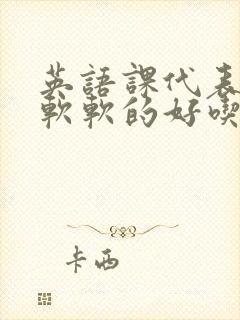 英語課代表
軟軟的好喫
卡西